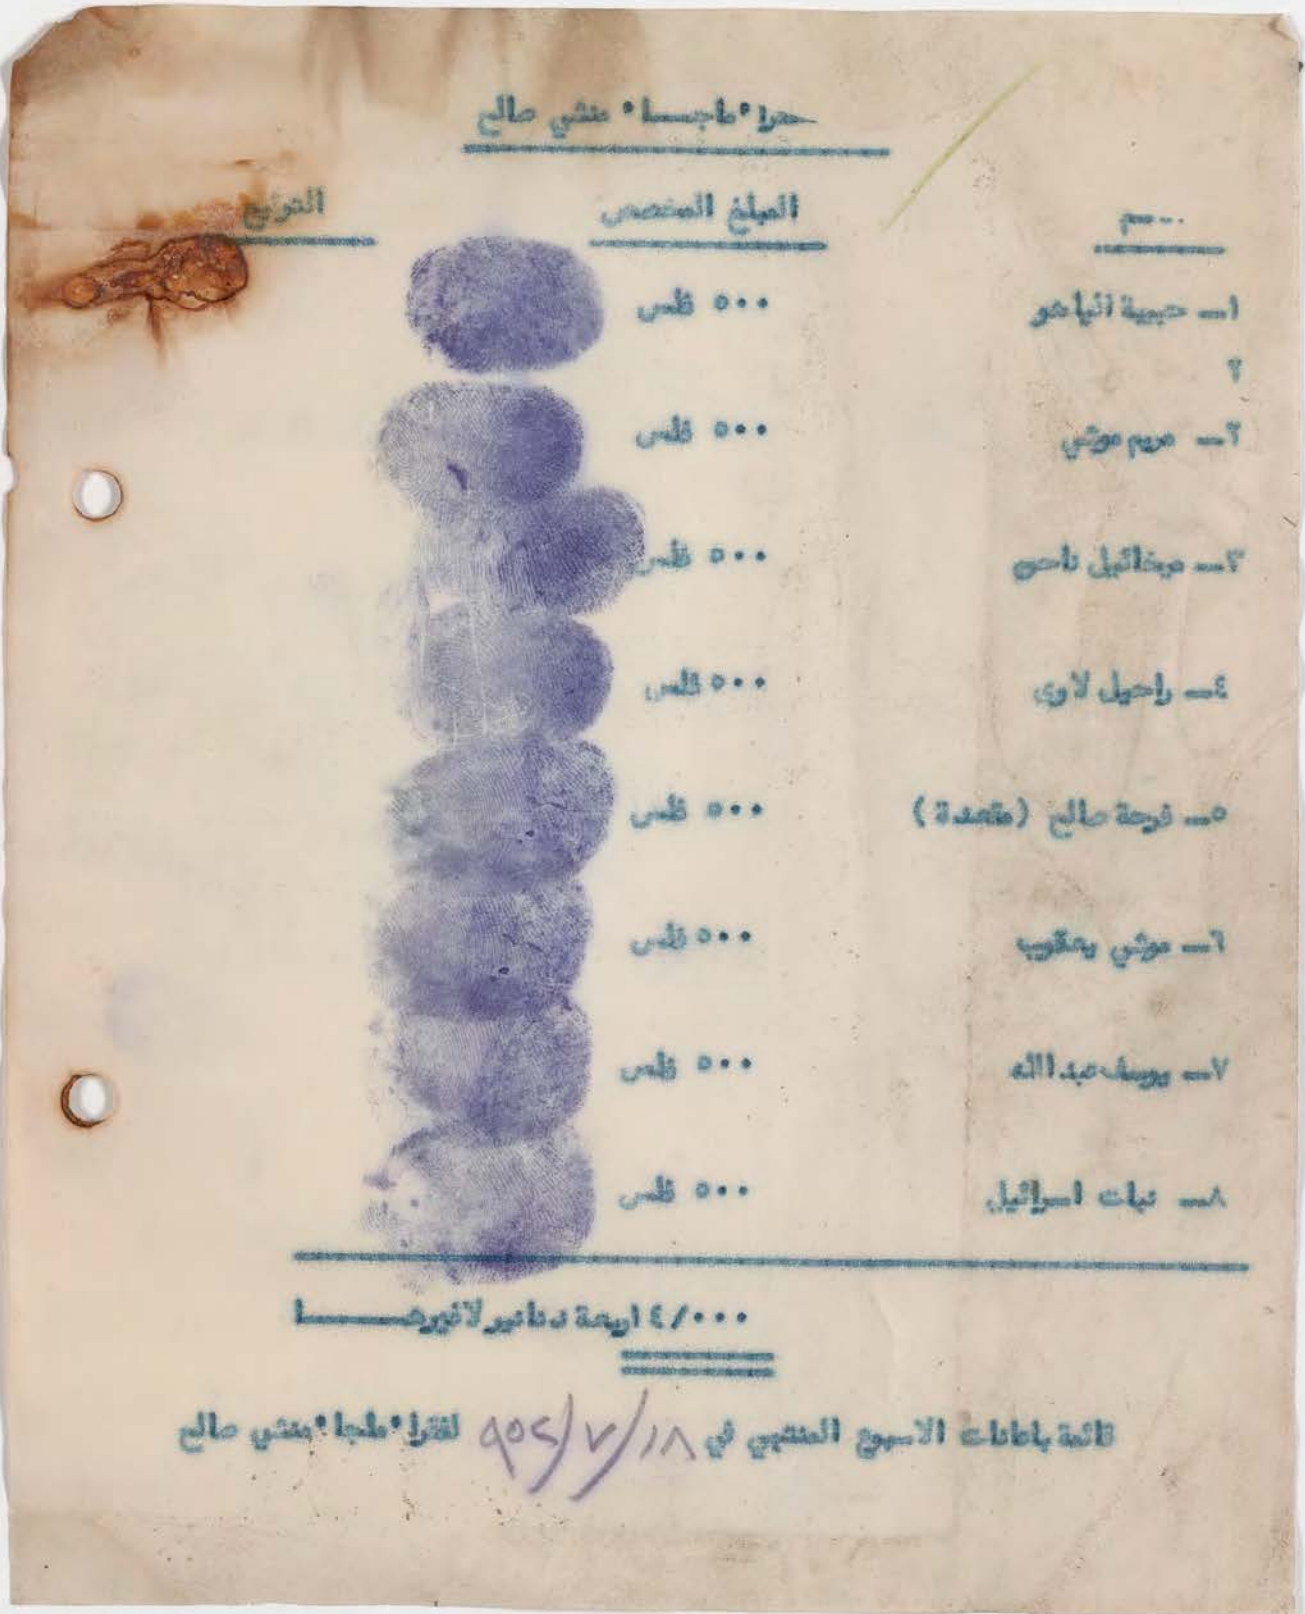 منشي صالح
المبلغ المخصص التوقيع
١ــ حبيبة الياهو ٥٠٠ فلس
٢
٢ــ مريم موشي ٥٠٠ فلس
٣ــ ميخائيل ناحوم ٥٠٠ فلس
٤ــ راحيل لاوى ٥٠٠ فلس
٥ــ فرحة صالح (مقعدة) ٥٠٠ فلس
٦ــ موشي يعقوب ٥٠٠ فلس
٧ــ يوسف عبد الله ٥٠٠ فلس
٨ــ نبات اسرائيل ٥٠٠ فلس
٤/٠٠٠ اربعة دنانير لاغيرهــــا
قائمة باعانات الاسبوع المنتهي في ١٨/٧/٩٥٢ لفقرا ٴ ملجا ٴ منشي صالح